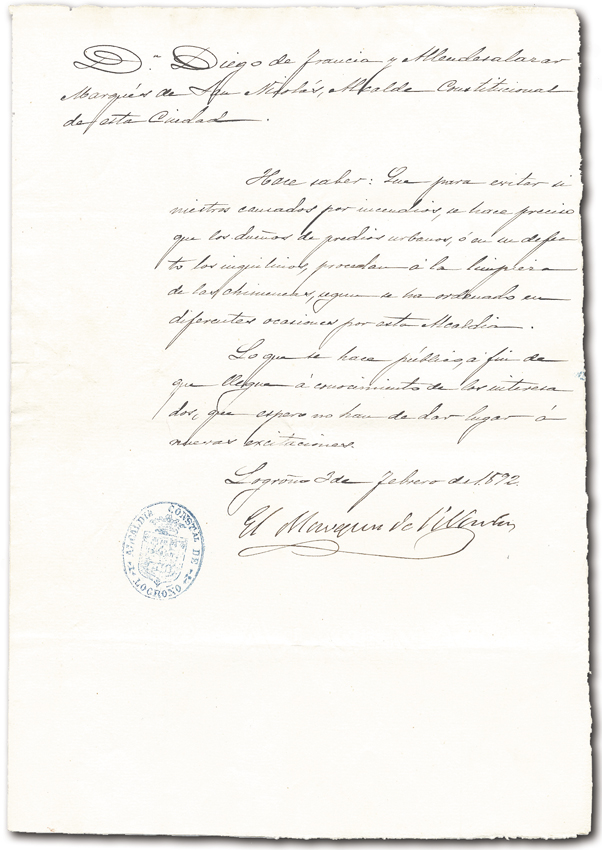 D.ⁿ Diego de Francia y Allendesalazar
Marqués de San Nicolás, Alcalde Constitucional
de esta Ciudad.
Hace saber: Que para evitar si
niestros causados por incendios, se hace preciso
que los dueños de predios urbanos, ó en su defec
to los inquilinos, procedan á la limpieza
de las chimeneas, segun se ha ordenado en
diferentes ocasiones por esta Alcaldia.
Lo que se hace público, á fin de
que llegue á conocimiento de los interesa
dos, que espero no han de dar lugar á
nuevas excitaciones.
Logroño 3 de Febrero de 1892.
El Marques de S. Nicolás
ALCALDIA CONSTAL DE
LOGROÑO